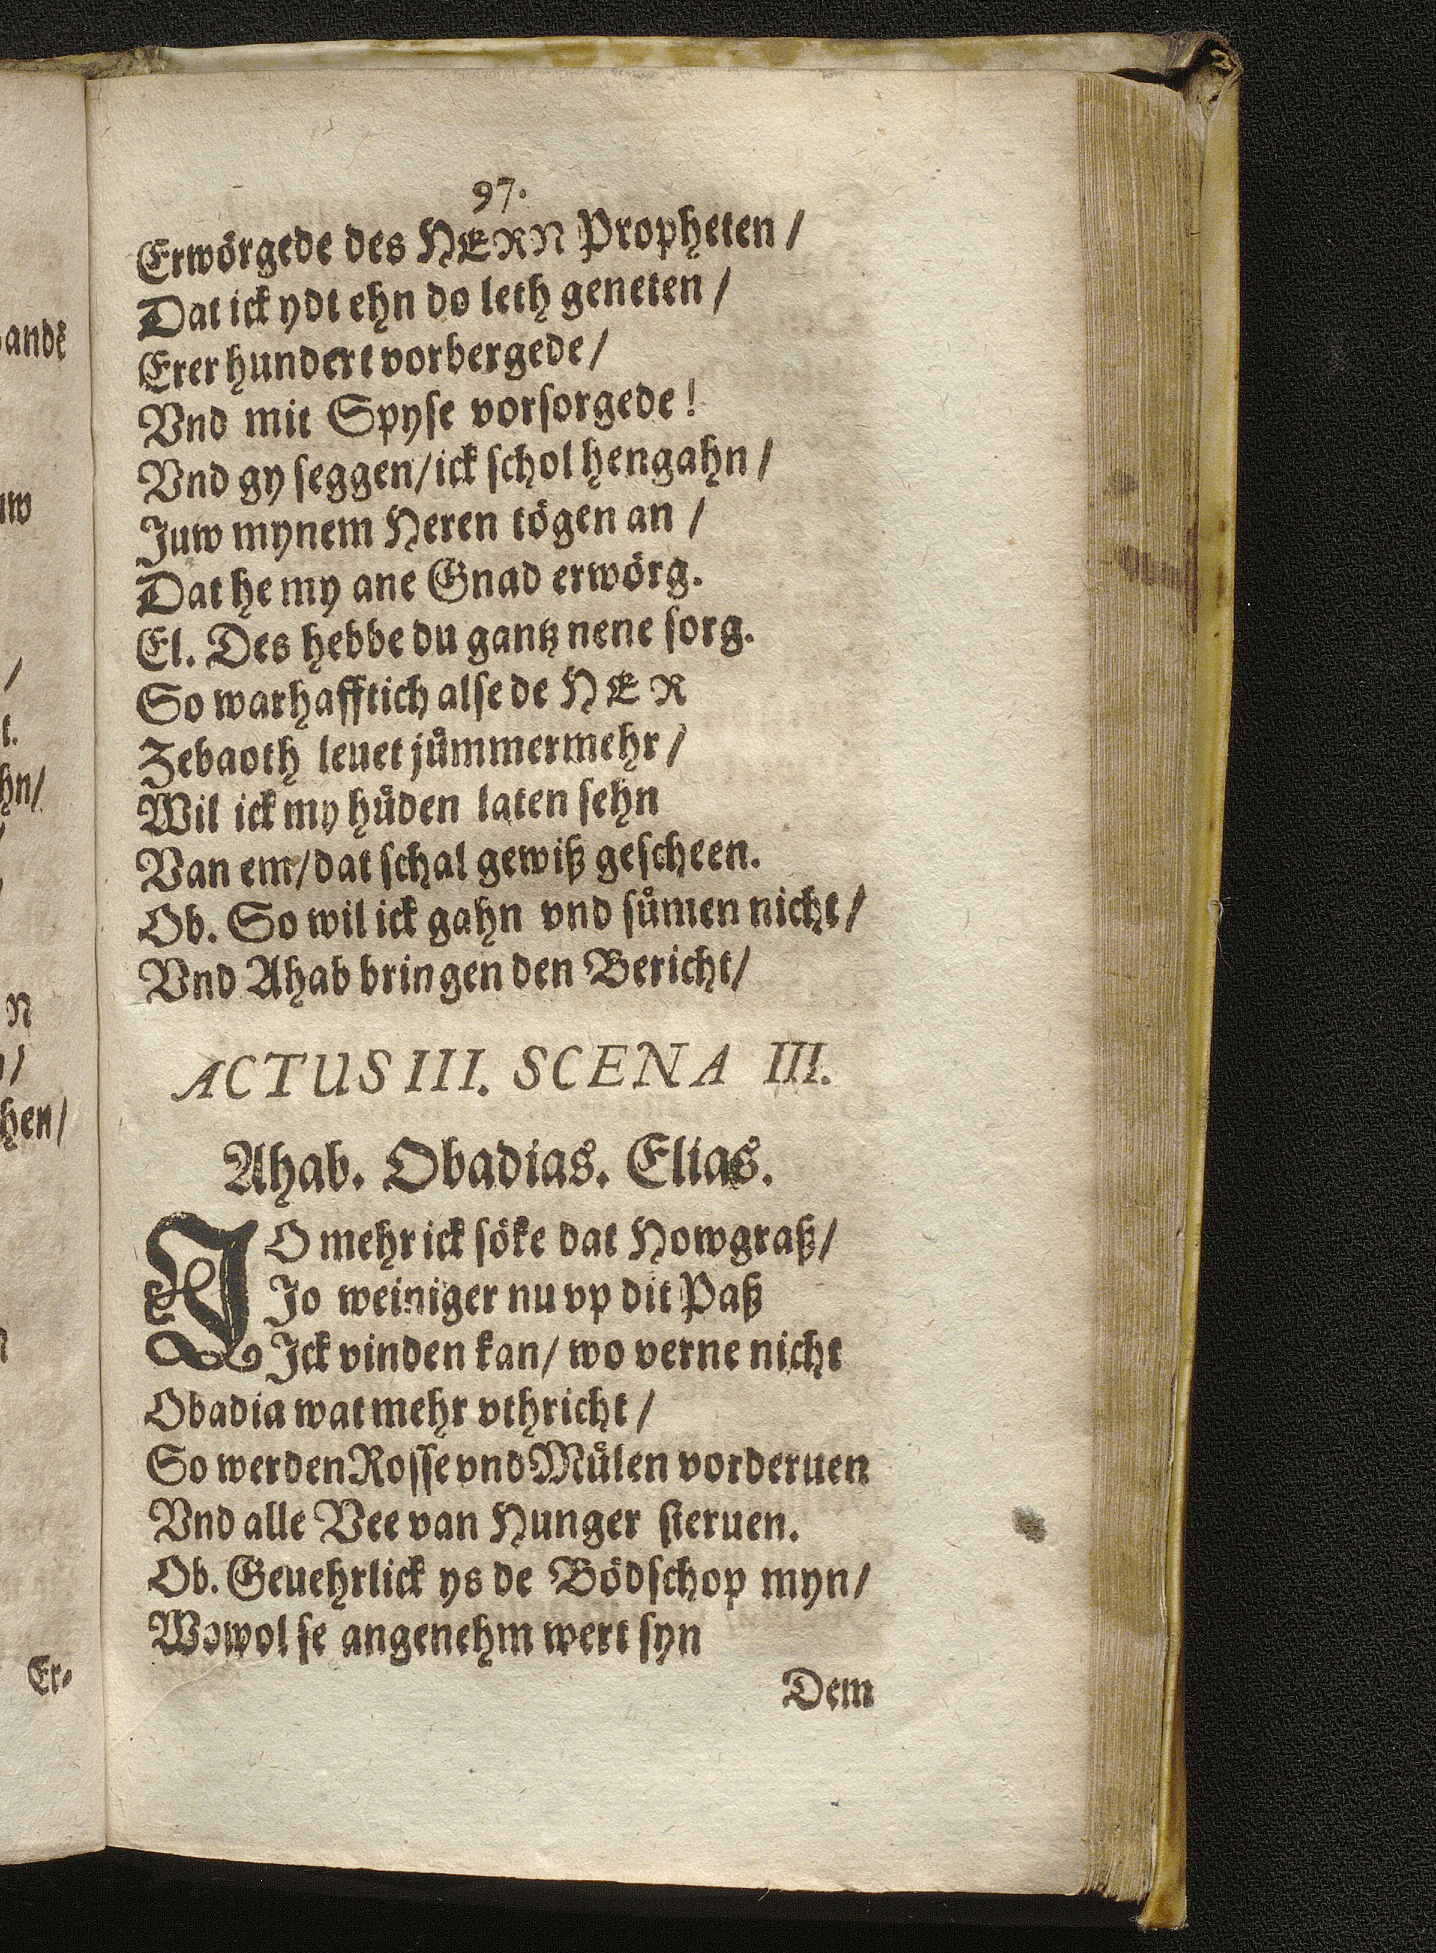 97.
Erwörgede des HERN Propheten /
Dat ick ydt ehn do leth geneten /
Erer hundert vorbergede /
Vnd mit Spyse vorsorgede !
Vnd gy seggen / ick schol hengahn /
Juw mynem Heren tögen an /
Dat he my ane Gnad erwörg.
El. Des hebbe du gantz nene sorg.
So warhafftich alse de HER
Zebaoth leuet jümmermehr /
Wil ick my hüden laten sehn
Van em / dat schal gewiß gescheen.
Ob. So wil ick gahn vnd sümen nicht /
Vnd Ahab bringen den Bericht /
ACTUS III. SCENA III.
Ahab. Obadias. Elias.
JO mehr ick söke dat Howgraß /
Jo weiniger nu vp dit Paß
Ick vinden kan / wo verne nicht
Obadia wat mehr vthricht /
So werden Rosse vnd Mülen vorderuen
Vnd alle Vee van Hunger steruen.
Ob. Geuehrlick ys de Bödschop myn /
Wowol se angenehm wert syn
Dem